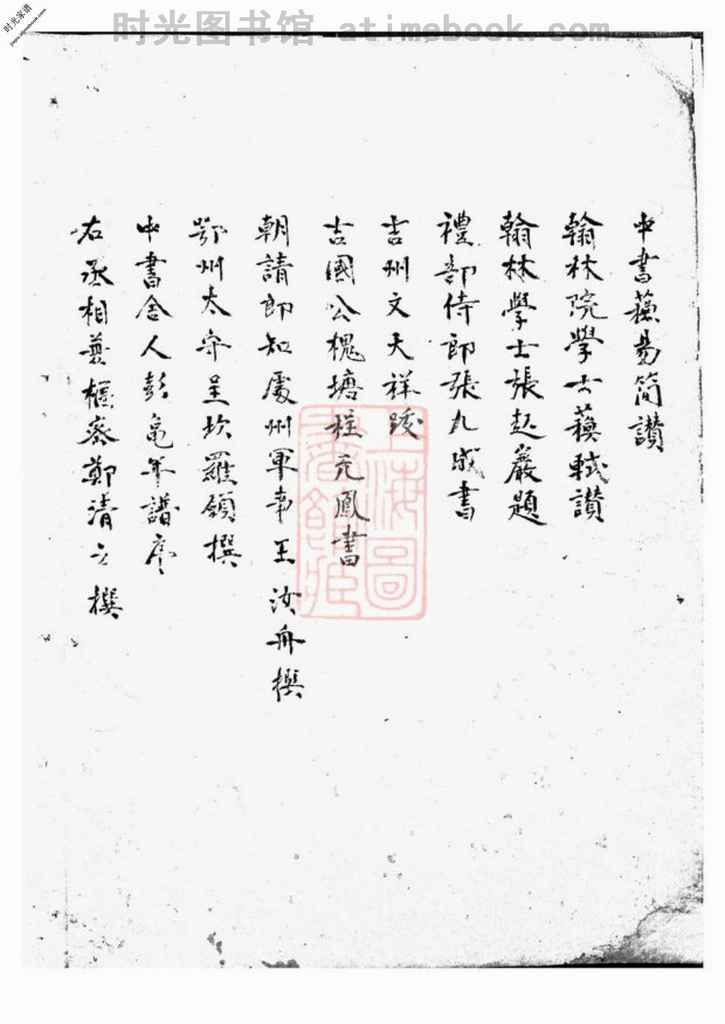 时光图书馆 - atimebook.com
时光家谱
中書蘓易簡讃
翰林院學士蘓軾讃
翰林學士張起巖題
禮部侍郎張九成書
吉州文天祥跋
吉國公槐塘程元鳳書
朝請郎知處州軍事王汝舟撰
鄂州太守呈坎羅頒撰
中書舍人彭龜年譜序
右丞相兼樞密鄭清之撰
上海圖書館藏